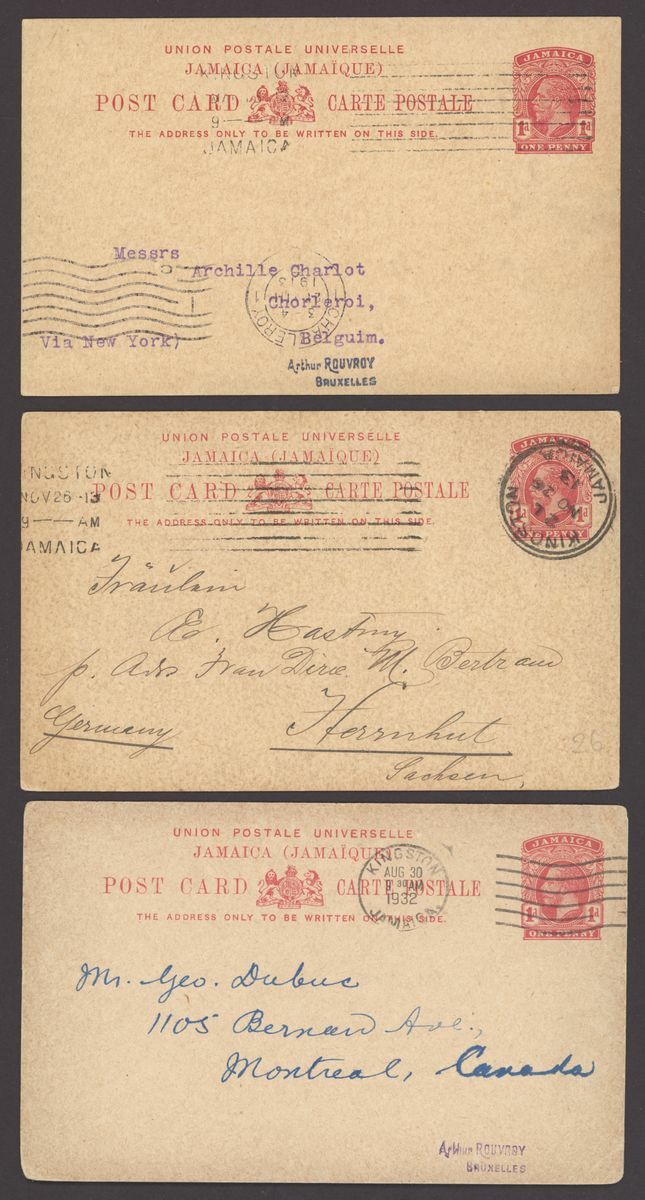 UNION POSTALE UNIVERSELLE
JAMAICA (JAMAÏQUE)
POST CARD CARTE POSTALE
THE ADDRESS ONLY TO BE WRITTEN ON THIS SIDE.
JAMAICA
1d 1d
ONE PENNY
KINGSTON
JAMAICA
Messrs
Archille Charlot
Chorleroi,
Via New York) Belguim.
CHARLEROY
1913
Arthur ROUVROY
BRUXELLES
UNION POSTALE UNIVERSELLE
JAMAICA (JAMAÏQUE)
POST CARD CARTE POSTALE
THE ADDRESS ONLY TO BE WRITTEN ON THIS SIDE.
JAMAICA
ONE PENNY
KINGSTON
NOV 26 13
9 — AM
JAMAICA
KINGSTON
JAMAICA
Fräulein
Bertram
Germany Herrnhut
Sachsen,
26
UNION POSTALE UNIVERSELLE
JAMAICA (JAMAÏQUE)
POST CARD CARTE POSTALE
THE ADDRESS ONLY TO BE WRITTEN ON THIS SIDE.
JAMAICA
1d 1d
ONE PENNY
KINGSTON
AUG 30
9 30 AM
1932
JAMAICA.
Mr. Geo. Dubuc
1105 Bernard Ave.,
Montreal, Canada
Arthur ROUVROY
BRUXELLES